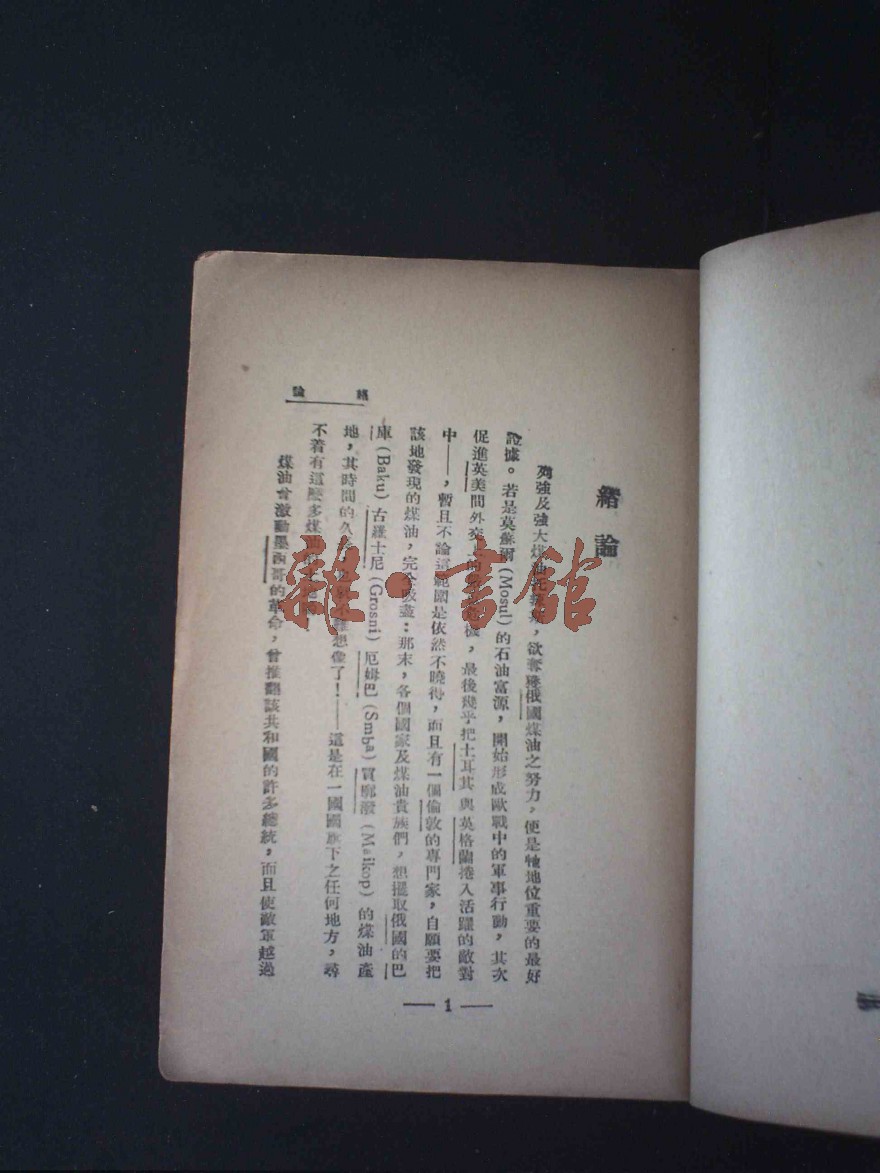 緒論
列強及強大煤油托，欲奪取俄國煤油之努力，便是牠地位重要的最好
證據。若是莫蘇爾(Mosul)的石油富源，開始形成歐戰中的軍事行動，其次
促進英美間外交上的，最後幾乎把土耳其與英格蘭捲入活躍的敵對
中——，暫且不論這範圍是依然不曉得，而且有一個倫敦的專門家，自願要把
該地發現的煤油，完全吸盡：那末，各個國家及煤油貴族們，想攫取俄國的巴
庫(Baku)古羅士尼(Grosni)厄姆巴(Smba)買廓潑(Maikop)的煤油產
地，其時間的久，想像了！——這是在一國國旗下之任何地方，尋
不着有這麼多煤油
煤油曾激動墨西哥的革命，曾推翻該共和國的許多總統，而且使敵軍越過
緒論
— 1 —
雜·書館